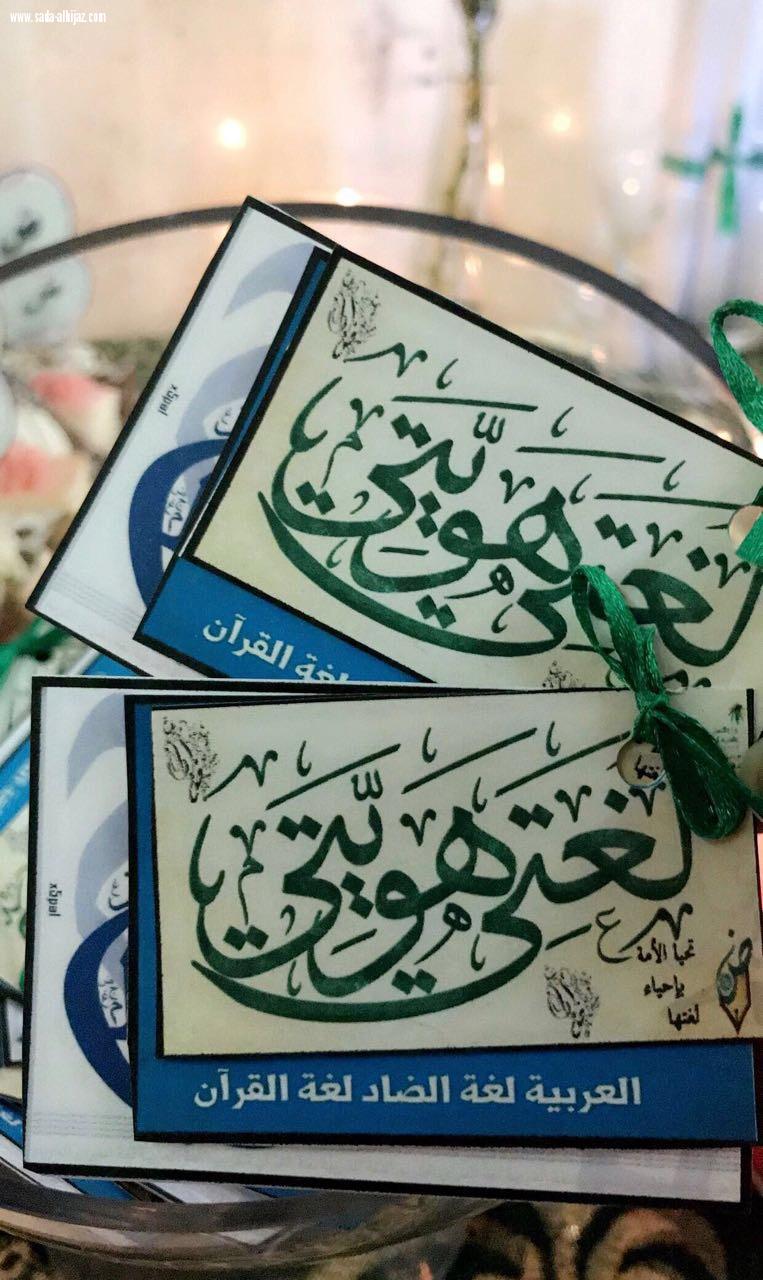 www.sada-alhijaz.com
x5pal
لغتي هويتي
لغة القرآن
x5pal
لغتي هويتي
تحيا الأمة
بإحياء
لغتها
ض
العربية لغة الضاد لغة القرآن